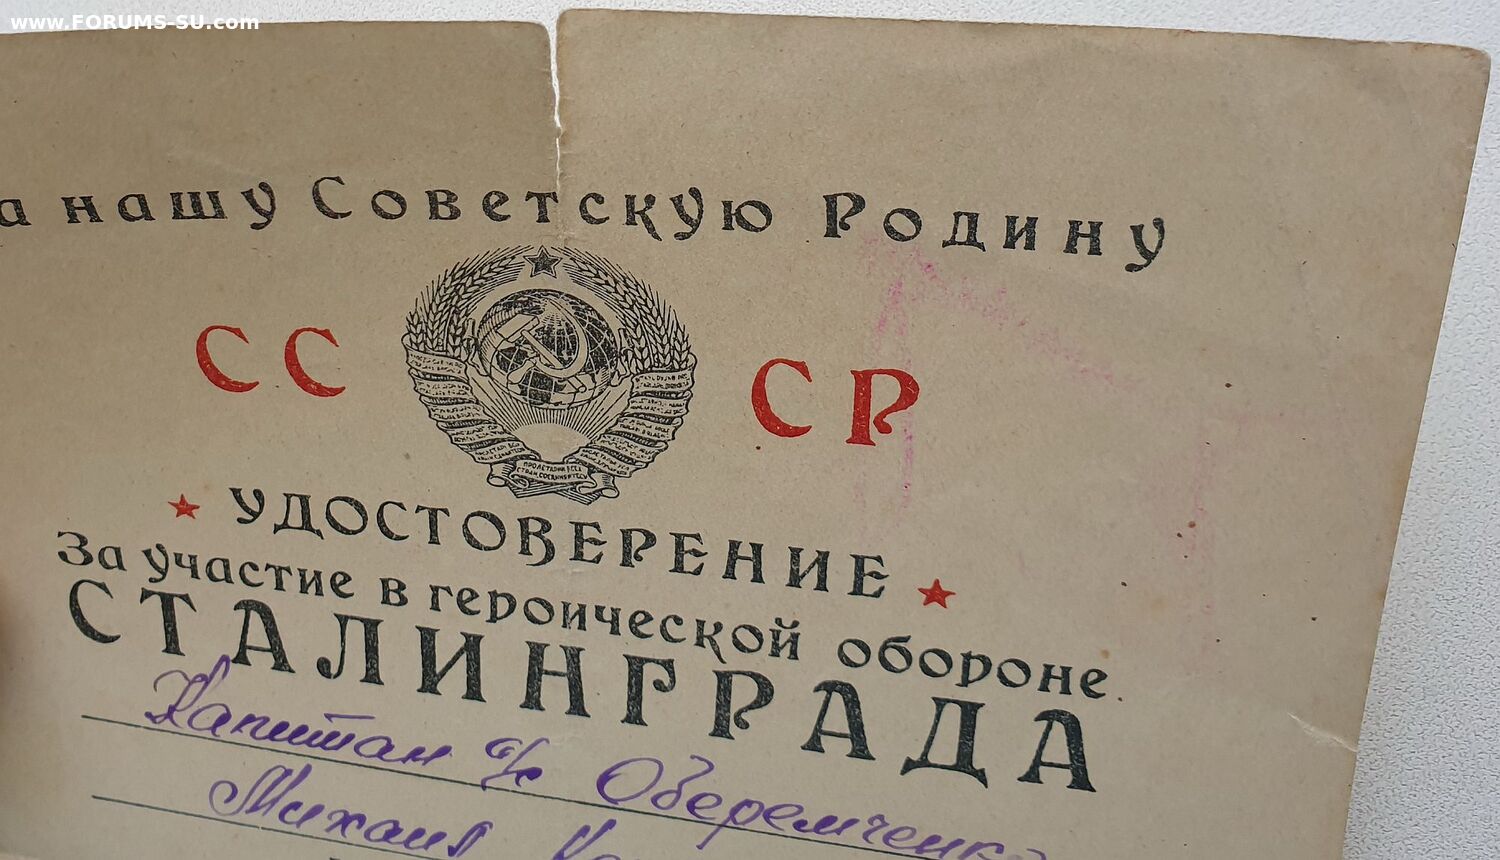 www.FORUMS-SU.com
а нашу Советскую Родину
СС СР
ПРОЛЕТАРИИ ВСЕХ
СТРАН СОЕДИНЯЙТЕСЬ
УДОСТОВЕРЕНИЕ
За участие в героической обороне
СТАЛИНГРАДА
Капитан а/с Оберемченко
Михаил